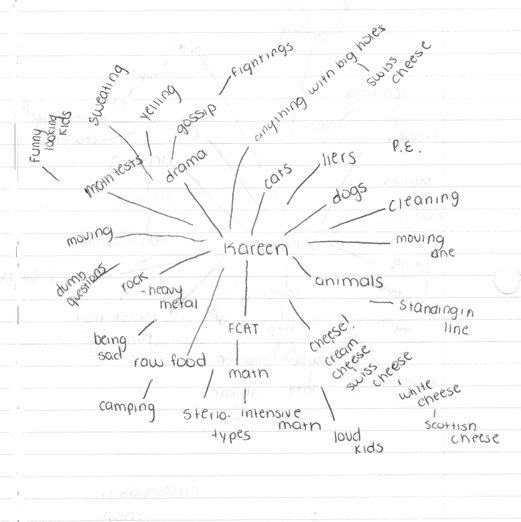 fightings
anything with big holes
swiss
cheese
sweating
yelling
gossip
funny
looking
kids
liers
P.E.
math tests
drama
cats
dogs
cleaning
moving
Kareen
moving
dumb
questions
rock
-heavy
metal
animals
standing in
line
being
sad
raw food
FCAT
math
cheese!
cream
cheese
swiss
cheese
white
cheese
scottish
cheese
camping
sterio-
types
intensive
math
loud
kids